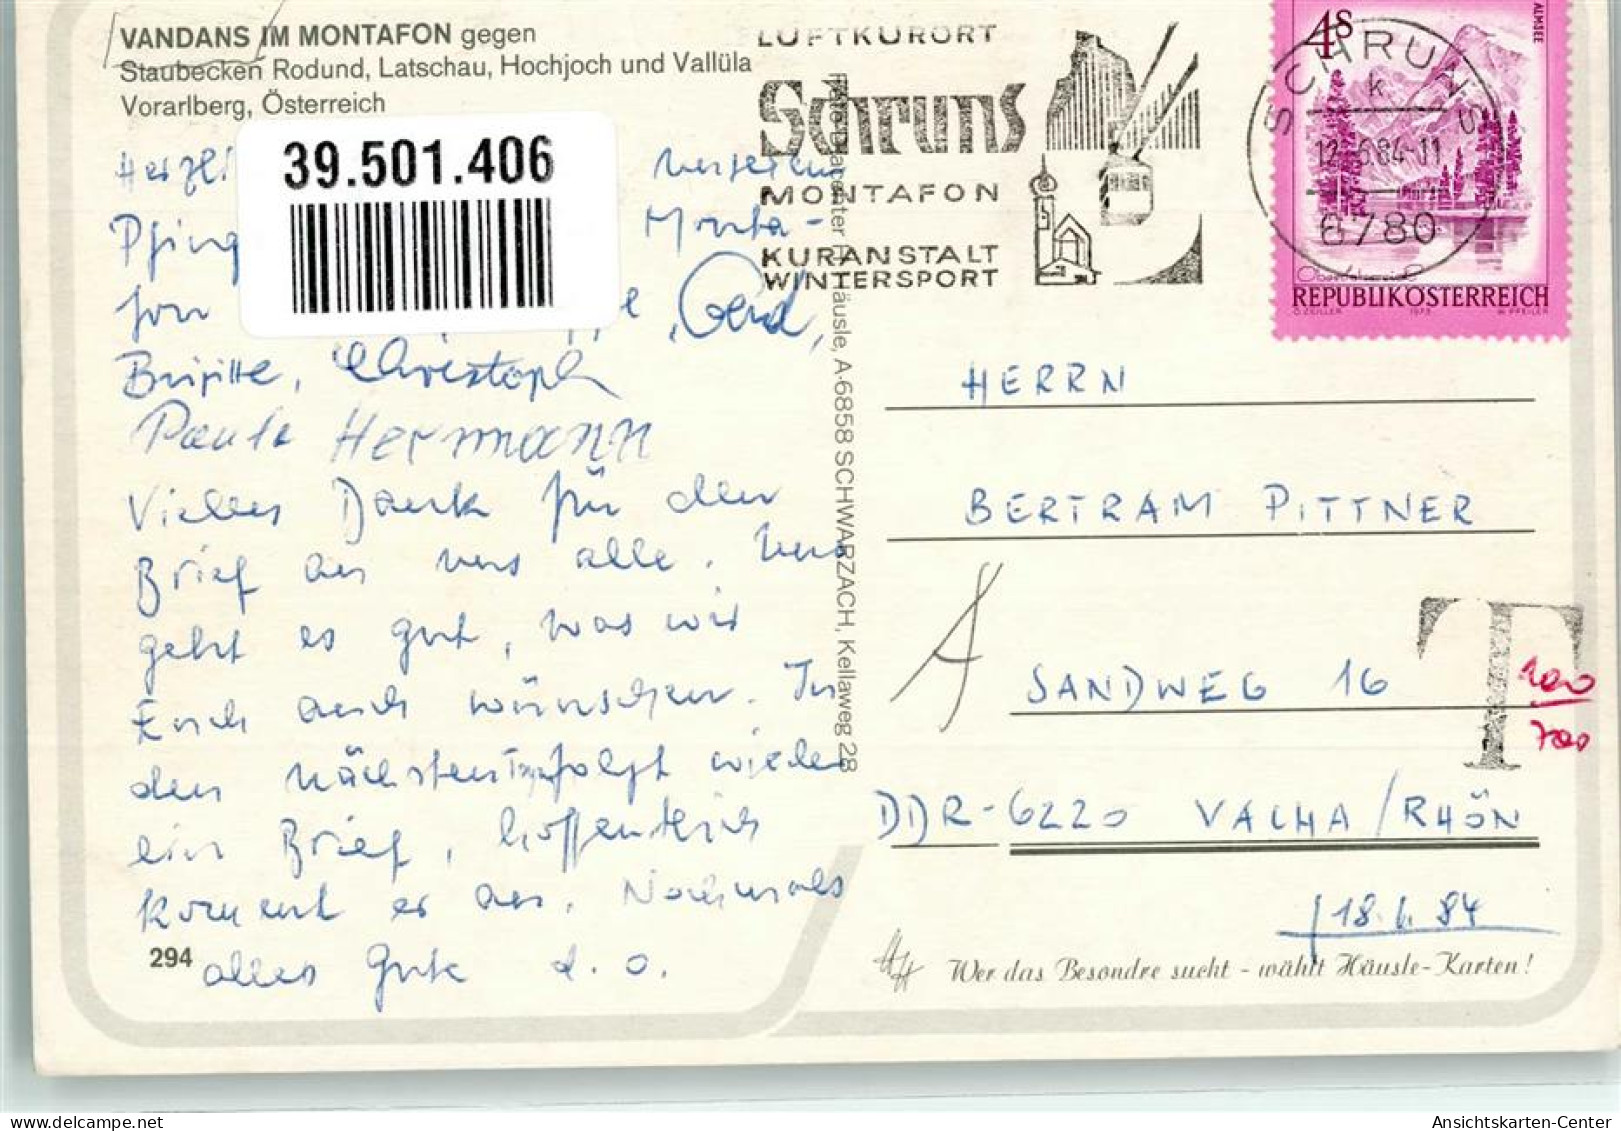 VANDANS IM MONTAFON gegen
Staubecken Rodund, Latschau, Hochjoch und Vallüla
Vorarlberg, Österreich
39.501.406
Herzli
Pfing Monta-
fon , Gerd,
Brigitte, Christoph
Paula Hermann
Vielen Dank für den
Brief an uns alle. Uns
geht es gut, was wir
Euch auch wünschen. In
den nächsten folgt wieder
ein Brief, hoffentlich
kommt er an. Nochmals
alles Gute d. O.
294
LUFTKURORT
Schruns
MONTAFON
KURANSTALT
WINTERSPORT
äusle, A-6858 SCHWARZACH, Kellaweg 28
4S
ALMSEE
SCHRUNS
k
12.-6.84-11
6780
REPUBLIK ÖSTERREICH
O. ZEILLER 1973 W. PFEILER
HERRN
BERTRAM PITTNER
SANDWEG 16
DDR-6220 VACHA/RHÖN
T
100
700
18.6.84
Wer das Besondre sucht - wählt Häusle-Karten!
www.delcampe.net
Ansichtskarten-Center